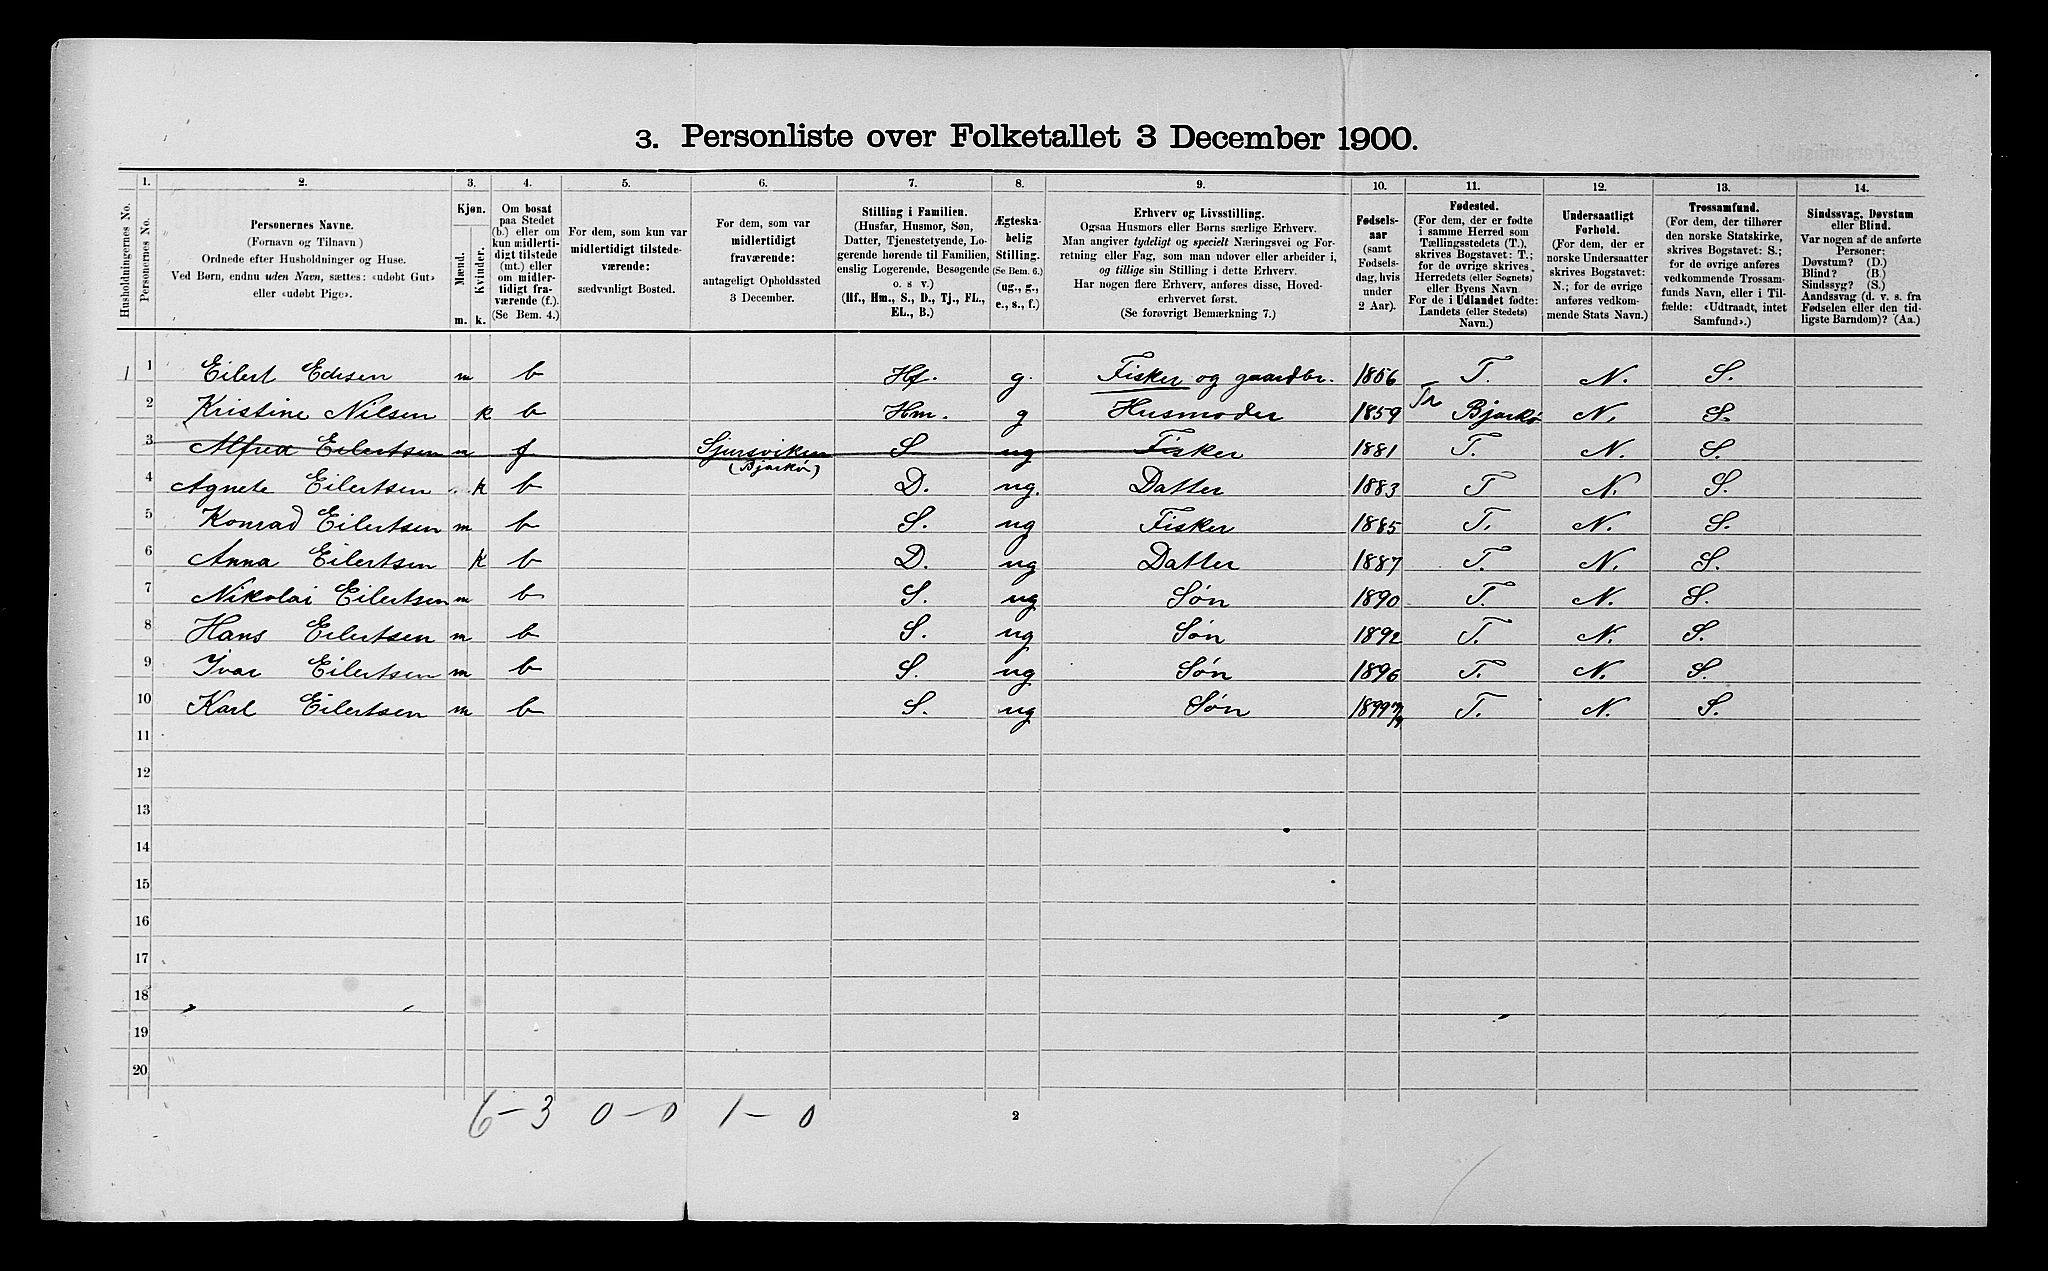 3. Personliste over Folketallet 3 December 1900.
Husholdningernes No.
1. Personernes No.
2. Personernes Navne. (Fornavn og Tilnavn) Ordnede efter Husholdninger og Huse. Ved Børn, endnu uden Navn, sættes: «udøbt Gut» eller «udøbt Pige».
3. Kjøn. Mænd. m. Kvinder. k.
4. Om bosat paa Stedet (b.) eller om kun midlertidigt tilstede (mt.) eller om midlertidigt fraværende (f.). (Se Bem. 4.)
5. For dem, som kun var midlertidigt tilstedeværende: sædvanligt Bosted.
6. For dem, som var midlertidigt fraværende: antageligt Opholdssted 3 December.
7. Stilling i Familien. (Husfar, Husmor, Søn, Datter, Tjenestetyende, Logerende hørende til Familien, enslig Logerende, Besøgende o. s v.) (Hf., Hm., S., D., Tj., FL., EL., B.)
8. Ægteskabelig Stilling. (Se Bem. 6.) (ug., g., e., s., f.)
9. Erhverv og Livsstilling. Ogsaa Husmors eller Børns særlige Erhverv. Man angiver tydeligt og specielt Næringsvei og Forretning eller Fag, som man udøver eller arbeider i, og tillige sin Stilling i dette Erhverv. Har nogen flere Erhverv, anføres disse, Hovederhvervet først. (Se forøvrigt Bemærkning 7.)
10. Fødselsaar (samt Fødselsdag, hvis under 2 Aar).
11. Fødested. (For dem, der er fødte i samme Herred som Tællingsstedets (T.), skrives Bogstavet: T.; for de øvrige skrives Herredets (eller Sognets) eller Byens Navn. For de i Udlandet fødte: Landets (eller Stedets) Navn.)
12. Undersaatligt Forhold. (For dem, der er norske Undersaatter skrives Bogstavet: N.; for de øvrige anføres vedkommende Stats Navn.)
13. Trossamfund. (For dem, der tilhører den norske Statskirke, skrives Bogstavet: S.; for de øvrige anføres vedkommende Trossamfunds Navn, eller i Tilfælde: «Udtraadt, intet Samfund».)
14. Sindssvag, Døvstum eller Blind. Var nogen af de anførte Personer: Døvstum? (D.) Blind? (B.) Sindssyg? (S.) Aandssvag (d. v. s. fra Fødselen eller den tidligste Barndom)? (Aa.)
1 1 Eilert Edisen m b Hf. g. Fisker og gaardbr. 1856 T. N. S.
2 Kristine Nilsen k b Hm. g Husmoder 1859 Tr Bjarkø N. S.
3 Alfred Eilertsen m f Sjursviken (Bjarkø) S ug Fisker 1881 T. N. S.
4 Agnete Eilertsen k b D. ug. Datter 1883 T N. S.
5 Konrad Eilertsen m b S. ug Fisker 1885 T. N. S.
6 Anna Eilertsen k b D. ug Datter 1887 T. N. S.
7 Nikolai Eilertsen m b S. ug Søn 1890 T. N. S.
8 Hans Eilertsen m b S. ug Søn 1892 T. N. S.
9 Ivar Eilertsen m b S. ug Søn 1896 T. N. S.
10 Karl Eilertsen m b S. ug Søn 1899 T. N. S.
11
12
13
14
15
16
17
18
19
20
6-3 0-0 1-0
2